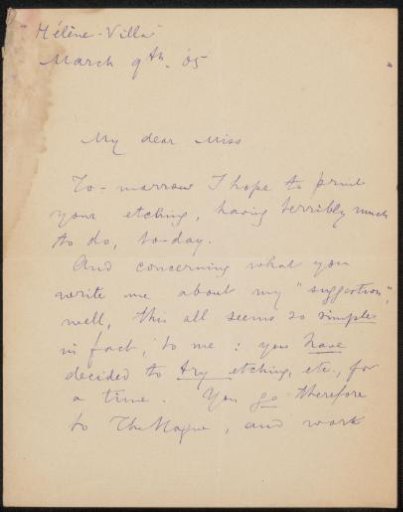 "Hélène-Villa"
March 9th. 05
My dear Miss
To-morrow I hope to print
your etching, having terribly much
to do, to-day.
And concerning what you
write me about my "suggestion",
well, this all seems so simple
in fact, to me: you have
decided to try etching, etc, for
a time. You go therefore
to The Hague, and work